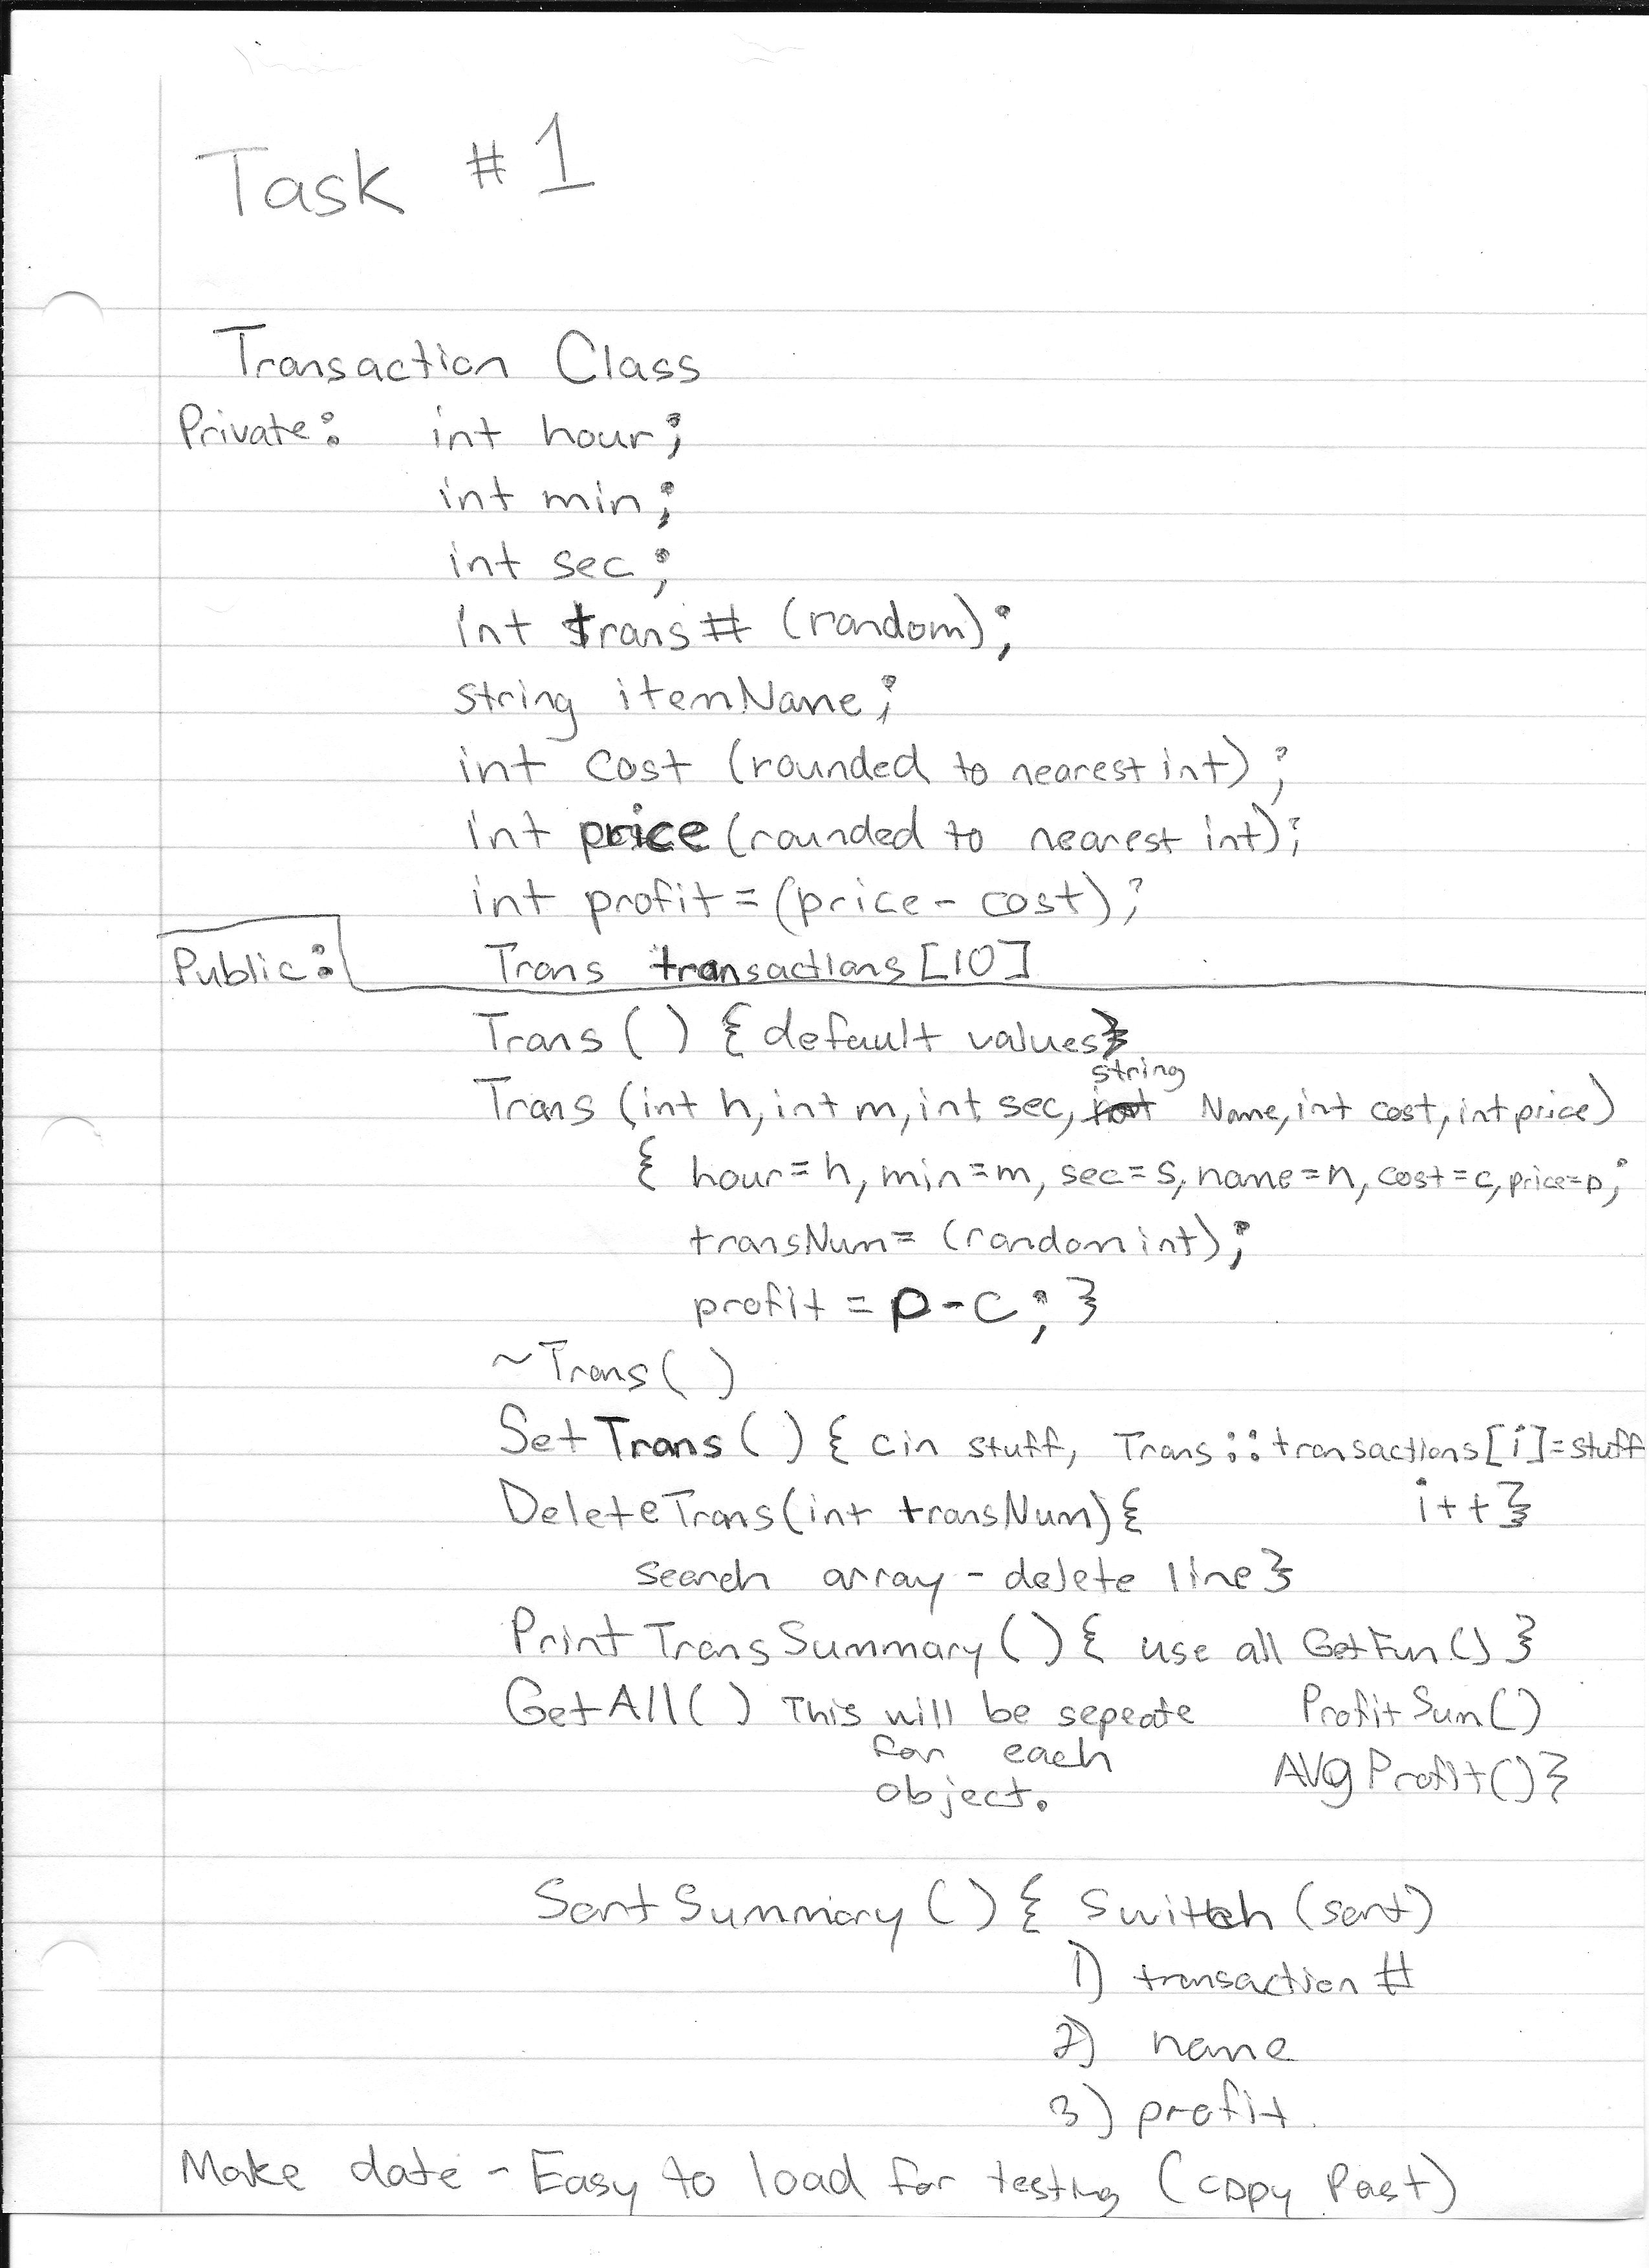 Task #1
Transaction Class
Private: int hour;
int min;
int sec;
int trans# (random);
string itemName;
int cost (rounded to nearest int);
int price (rounded to nearest int);
int profit = (price - cost);
Public: Trans transactions[10]
Trans () { default values}
string
Trans (int h, int m, int sec, Name, int cost, int price)
{ hour=h, min=m, sec=s, name=n, cost=c, price=p;
transNum= (random int);
profit = p-c; }
~Trans( )
SetTrans( ) { cin stuff, Trans::transactions[i]=stuff
DeleteTrans(int transNum){ i++}
search array - delete line}
Print Trans Summary ( ) { use all GetFun() }
GetAll( ) This will be sepeate ProfitSum()
for each
object. AVgProfit()}
SortSummary ( ) { Switch (sort)
1) transaction #
2) name
3) profit.
Make date - Easy to load for testing (copy Past)